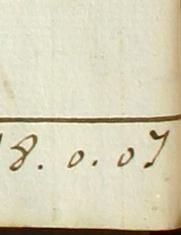 18. 0. 07